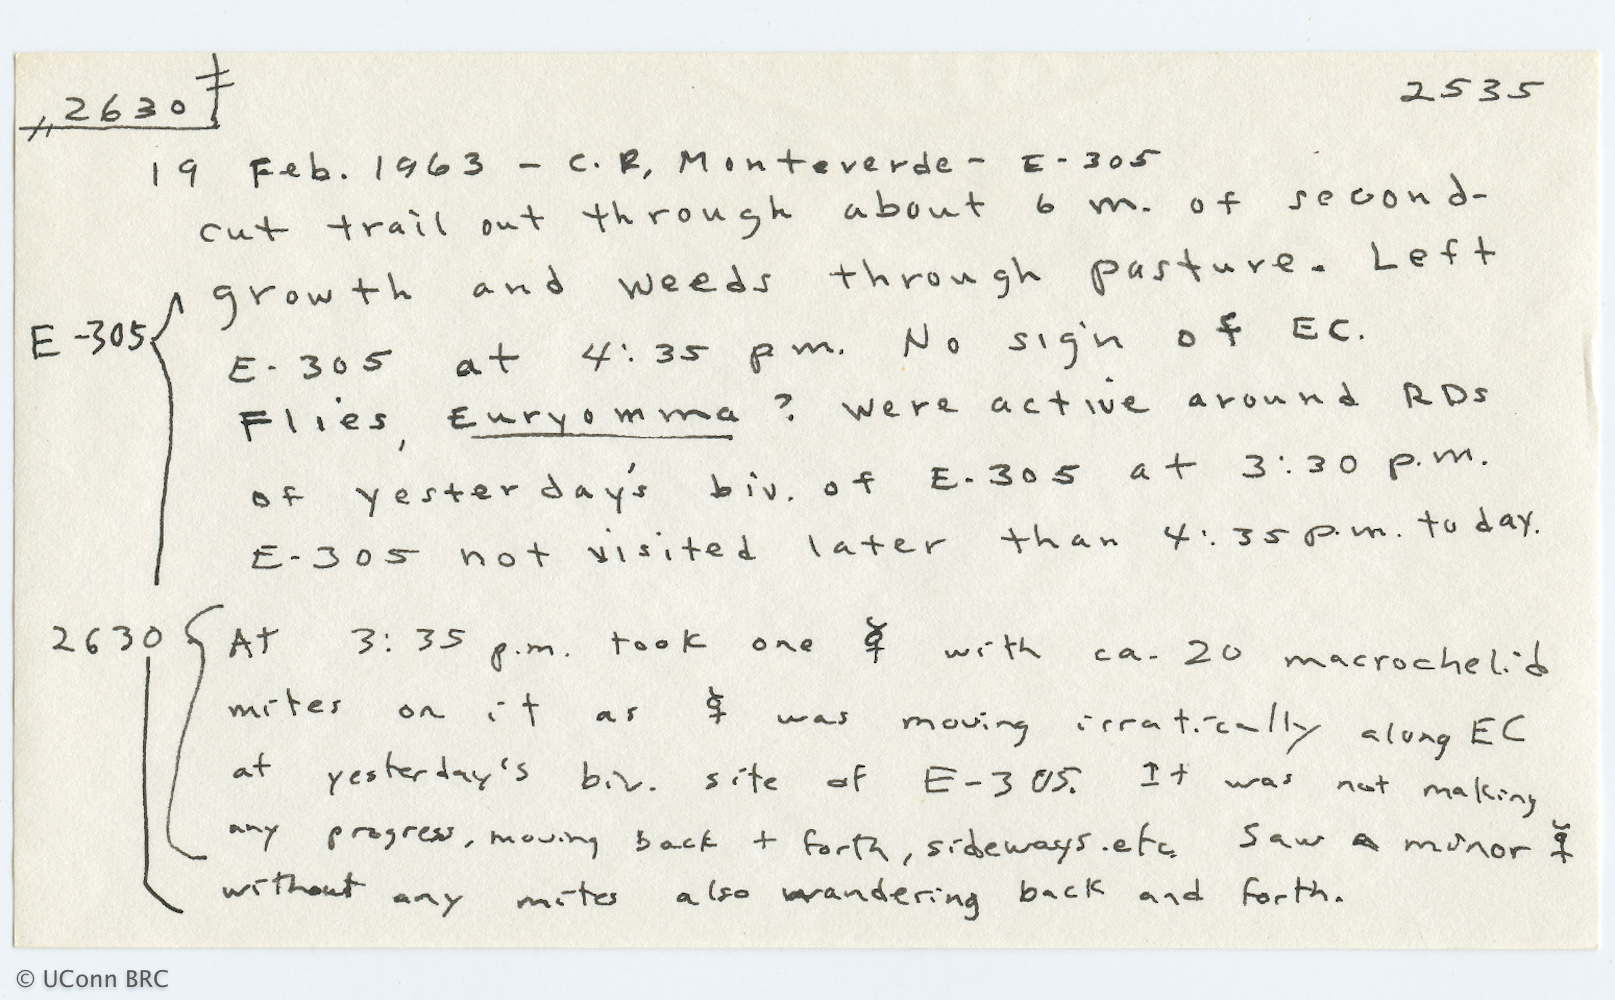 2630
2535
19 Feb. 1963 - C.R, Monteverde - E-305
cut trail out through about 6 m. of second-
growth and weeds through pasture. Left
E-305
E-305 at 4:35 pm. No sign of EC.
Flies, Euryomma ? were active around RDs
of yesterday's biv. of E-305 at 3:30 p.m.
E-305 not visited later than 4:35 p.m. today.
2630
At 3:35 p.m. took one ☿ with ca. 20 macrochelid
mites on it as ☿ was moving irratically along EC
at yesterday's biv. site of E-305. It was not making
any progress, moving back + forth, sideways.etc. Saw a minor ☿
without any mites also wandering back and forth.
© UConn BRC